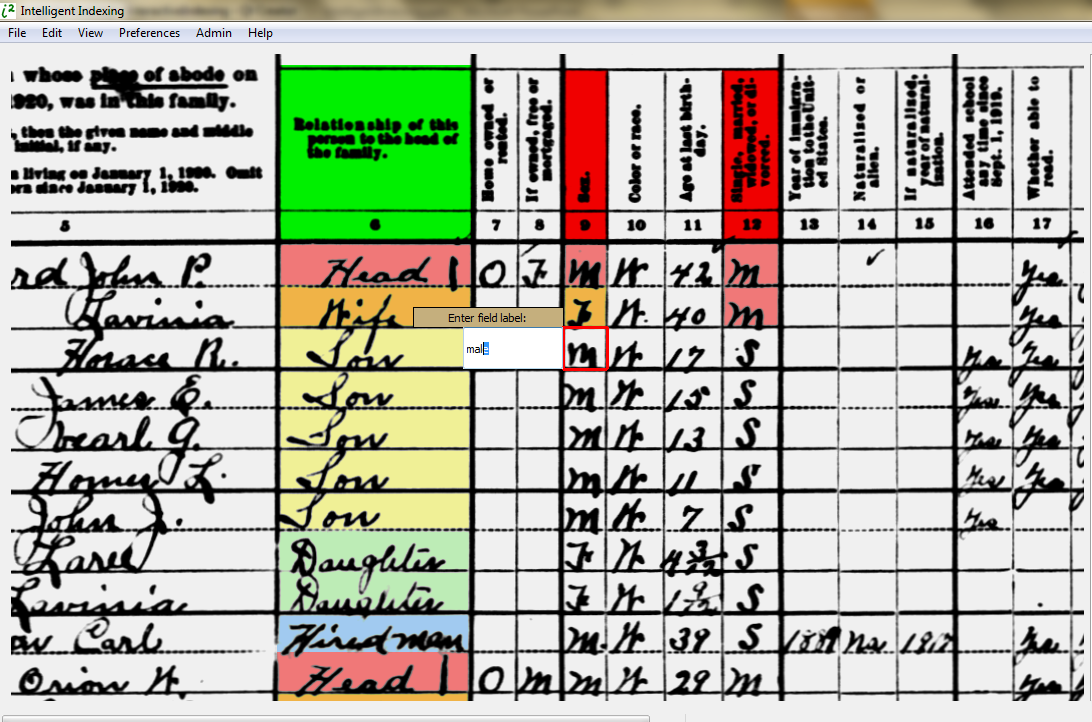 Intelligent Indexing
File Edit View Preferences Admin Help
whose place of abode on
1920, was in this family.
, then the given name and middle
initial, if any.
living on January 1, 1920. Omit
born since January 1, 1920.
Relationship of this
person to the head of
the family.
Home owned or
rented.
If owned, free or
mortgaged.
Sex.
Color or race.
Age at last birth-
day.
Single, married,
widowed, or di-
vorced.
Year of immigra-
tion to the Unit-
ed States.
Naturalized or
alien.
If naturalized,
year of natural-
ization.
Attended school
any time since
Sept. 1, 1919.
Whether able to
read.
5 6 7 8 9 10 11 12 13 14 15 16 17
rd John P. Head 1 O F M W 42 M Yes
Lavinia Wife F W 40 M Yes
Enter field label:
male
Horace R. Son M W 17 S Yes Yes
James E. Son M W 15 S Yes Yes
Pearl G. Son M W 13 S Yes Yes
Homer L. Son M W 11 S Yes Yes
John J. Son M W 7 S Yes
Daughter F W 4 3/12 S
Lavinia Daughter F W S
Carl Hired man M W 39 S Na Yes
Orion W. Head 1 O M M W 29 M Yes